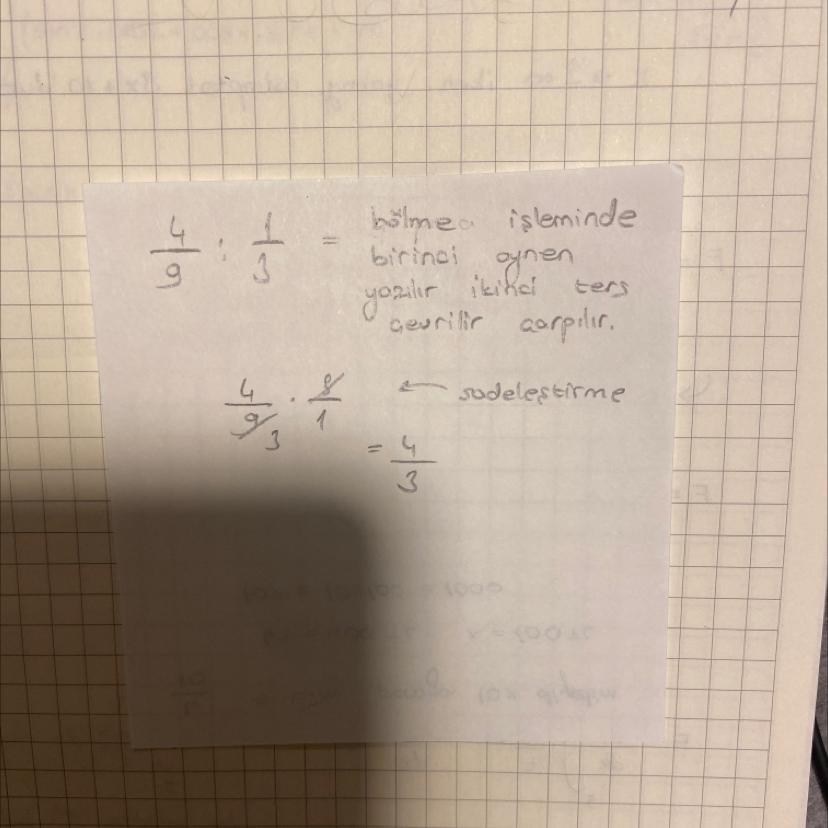 4/9 : 1/3 = bölme işleminde
birinci aynen
yazılır ikinci ters
çevrilir çarpılır.
4/9 3 · 3/1 ← sadeleştirme
= 4/3